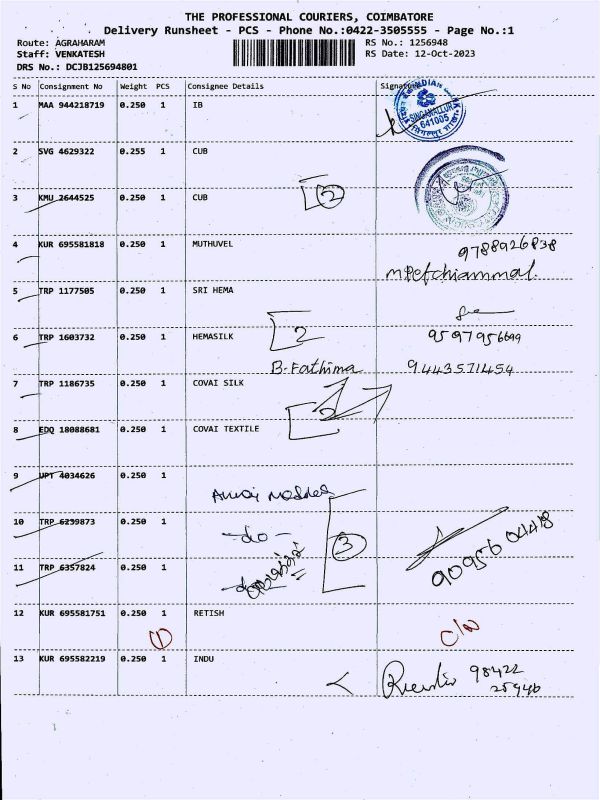 THE PROFESSIONAL COURIERS, COIMBATORE
Delivery Runsheet - PCS - Phone No.:0422-3505555 - Page No.:1
Route: AGRAHARAM RS No.: 1256948
Staff: VENKATESH RS Date: 12-Oct-2023
DRS No.: DCJB125694801
S No Consignment No Weight PCS Consignee Details Signature
1 MAA 944218719 0.250 1 IB
INDIA
SINGANALLUR
641005
2 SVG 4629322 0.255 1 CUB
3 KMU 2644525 0.250 1 CUB
2
4 KUR 695581818 0.250 1 MUTHUVEL 9788926838
5 TRP 1177505 0.250 1 SRI HEMA
6 TRP 1603732 0.250 1 HEMASILK 2
B. Fathima 9443571454
7 TRP 1186735 0.250 1 COVAI SILK
2
8 EDQ 18088681 0.250 1 COVAI TEXTILE
9 UPT 4034626 0.250 1
10 TRP 6239873 0.250 1 -do-
3
11 TRP 6357824 0.250 1
12 KUR 695581751 0.250 1 RETISH
1 C/N
13 KUR 695582219 0.250 1 INDU
98422
25946